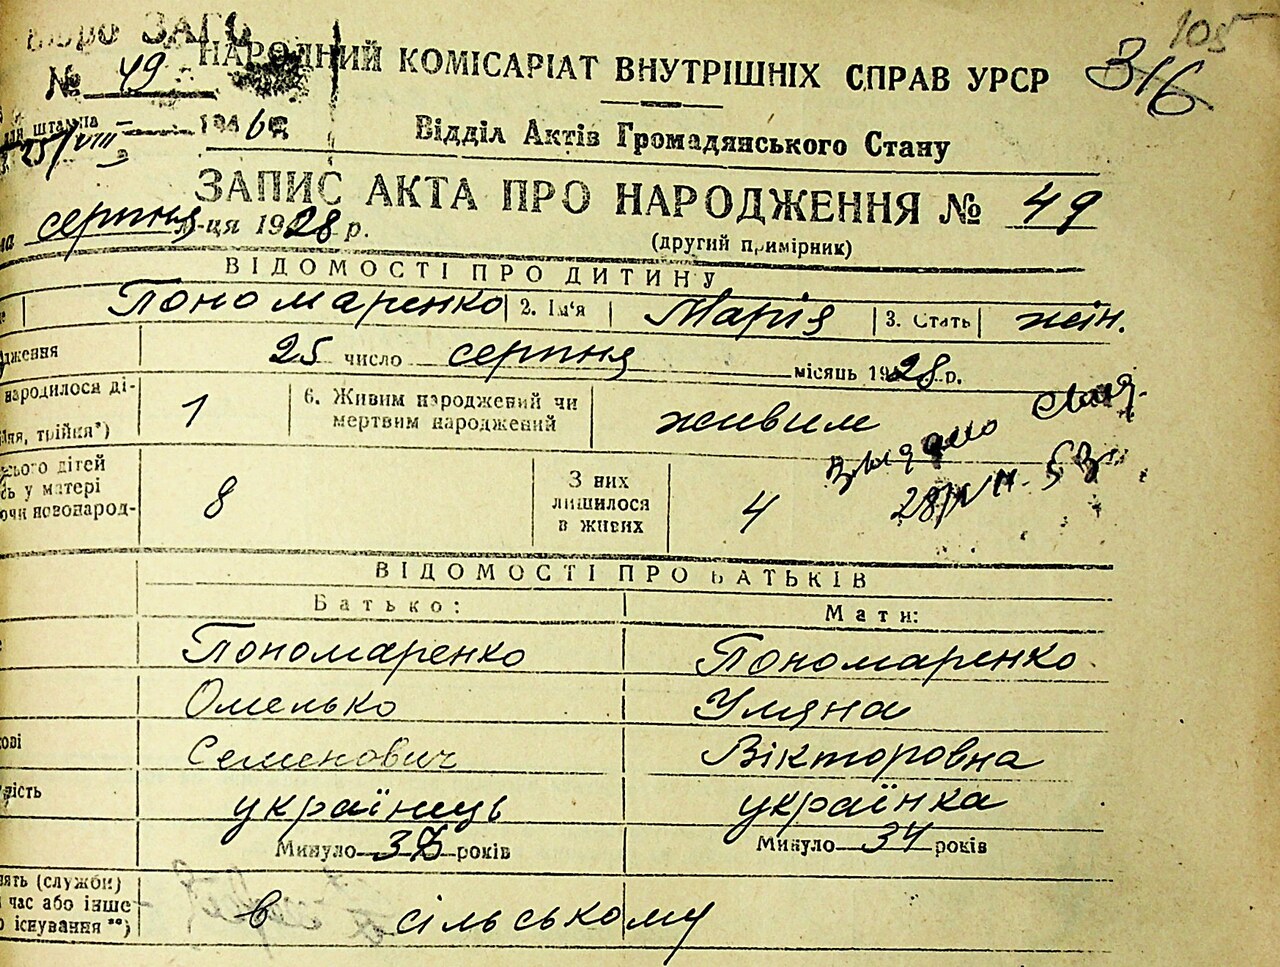 Бюро ЗАГС
105
316
НАРОДНИЙ КОМІСАРІАТ ВНУТРІШНІХ СПРАВ УРСР
№ 49
штампа 25/VIII 1946
Відділ Актів Громадянського Стану
ЗАПИС АКТА ПРО НАРОДЖЕННЯ № 49
на серпня м-ця 1928 р.
(другий примірник)
ВІДОМОСТІ ПРО ДИТИНУ
Пономаренко 2. Ім'я Марія 3. Стать жін.
дження 25 число серпня місяць 1928 р.
народилося ді-
йня, трійня*) 1 6. Живим народжений чи мертвим народжений живим
28/VII-53
ього дітей
сь у матері
ючи новонарод- 8 З них лишилося в живих 4
ВІДОМОСТІ ПРО БАТЬКІВ
Батько: Мати:
Пономаренко Пономаренко
Омелько Уляна
ові Семенович Вікторовна
ність українець українка
Минуло років Минуло 34 років
нять (служби)
час або інше
о існування **) в сільському